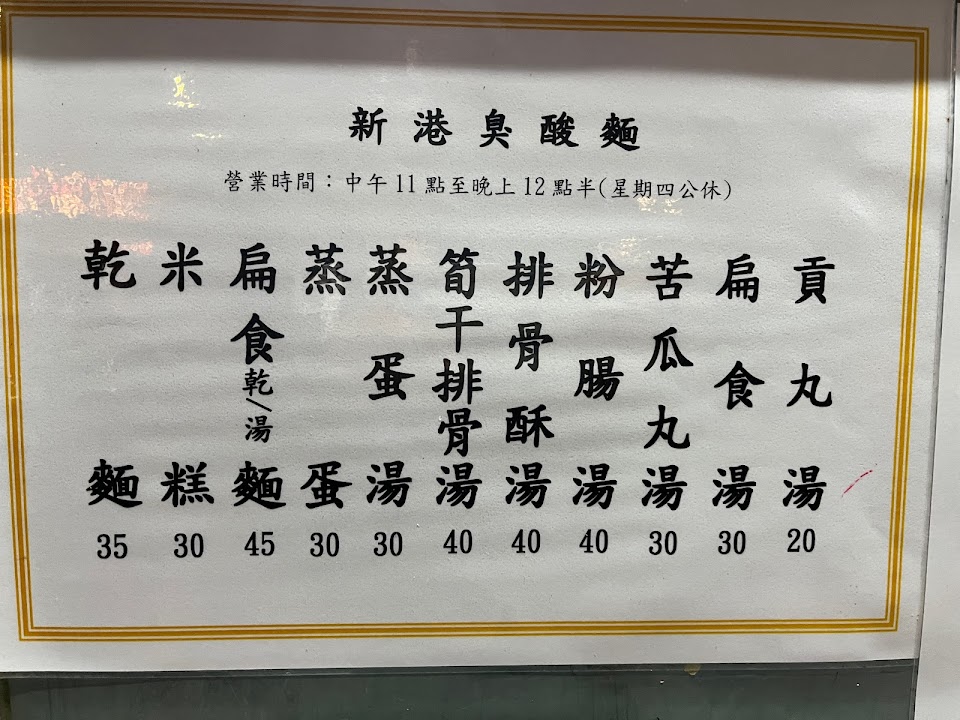 新港臭酸麵
營業時間：中午11點至晚上12點半(星期四公休)
乾麵 35
米糕 30
扁食乾/湯麵 45
蒸蛋 30
蒸蛋湯 30
筍干排骨湯 40
排骨酥湯 40
粉腸湯 40
苦瓜丸湯 30
扁食湯 30
貢丸湯 20